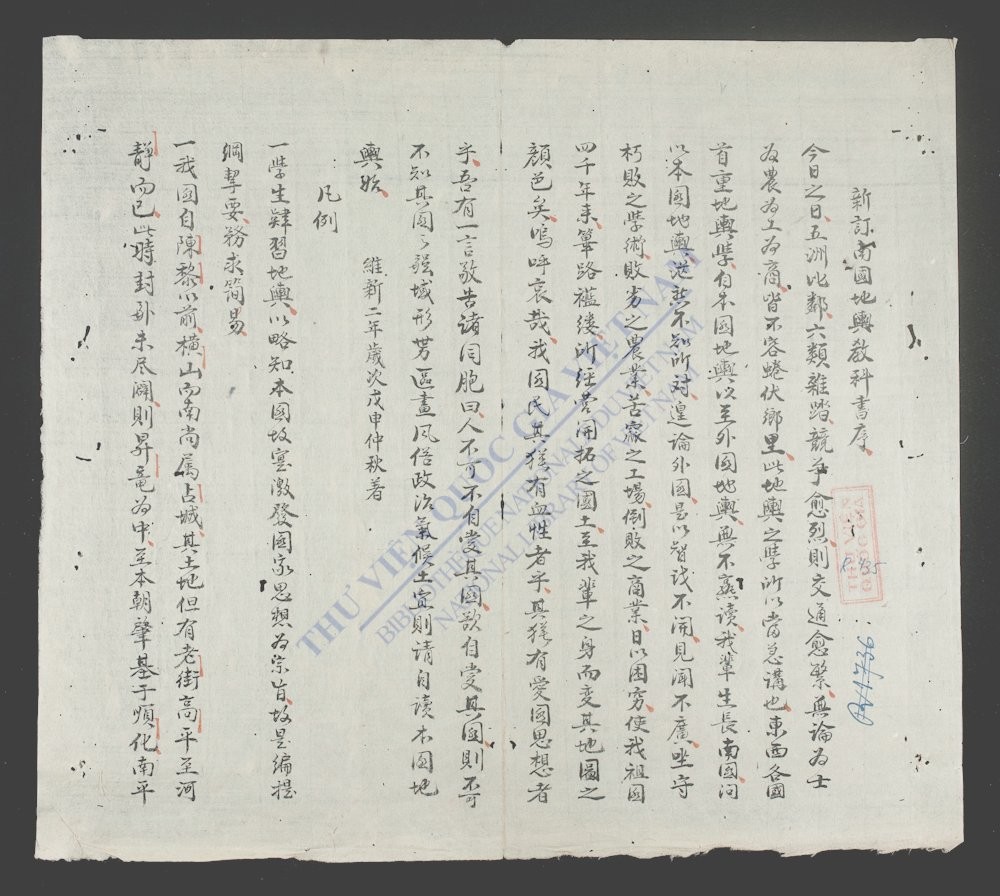 新訂南國地輿敎科書序
今日之日五洲比鄰六類雜踏競爭愈烈則交通愈繁無論为士
为農为工为商皆不容蜷伏鄉里此地輿之學所以當急講也東西各國
首重地輿學自本國地輿以至外國地輿無不熟讀我輩生長南國问
以本國地輿茫然不知所对遑論外國是以智识不開見闻不廣坐守
朽敗之學術敗劣之農業苦窳之工場倒敗之商業日以困穷使我祖國
四千年来篳路襤縷所经营開拓之國土至我輩之身而变其地圖之
顔色矣嗚呼哀哉我国民其猶有血性者乎其猶有愛國思想者
乎吾有一言敬告诸同胞曰人不可不自愛其國欲自愛其國則不可
不知其國之疆域形势區畫风俗政治氣候土宜則请自讀本國地
輿始
維新二年歲次戊申仲秋著
凡例
一學生肄習地輿以略知本國故寔激發國家思想为宗旨故是编提
綱挈要務求简易
一我国自陳黎以前橫山而南尚属占城其土地但有老街高平至河
靜而已此時封疆未尽闢則昇竜为中至本朝肇基于順化南平
R.435
THƯ VIỆN QUỐC GIA VIỆT NAM
BIBLIOTHEQUE NATIONAL DU VIETNAM
NATIONAL LIBRARY OF VIETNAM